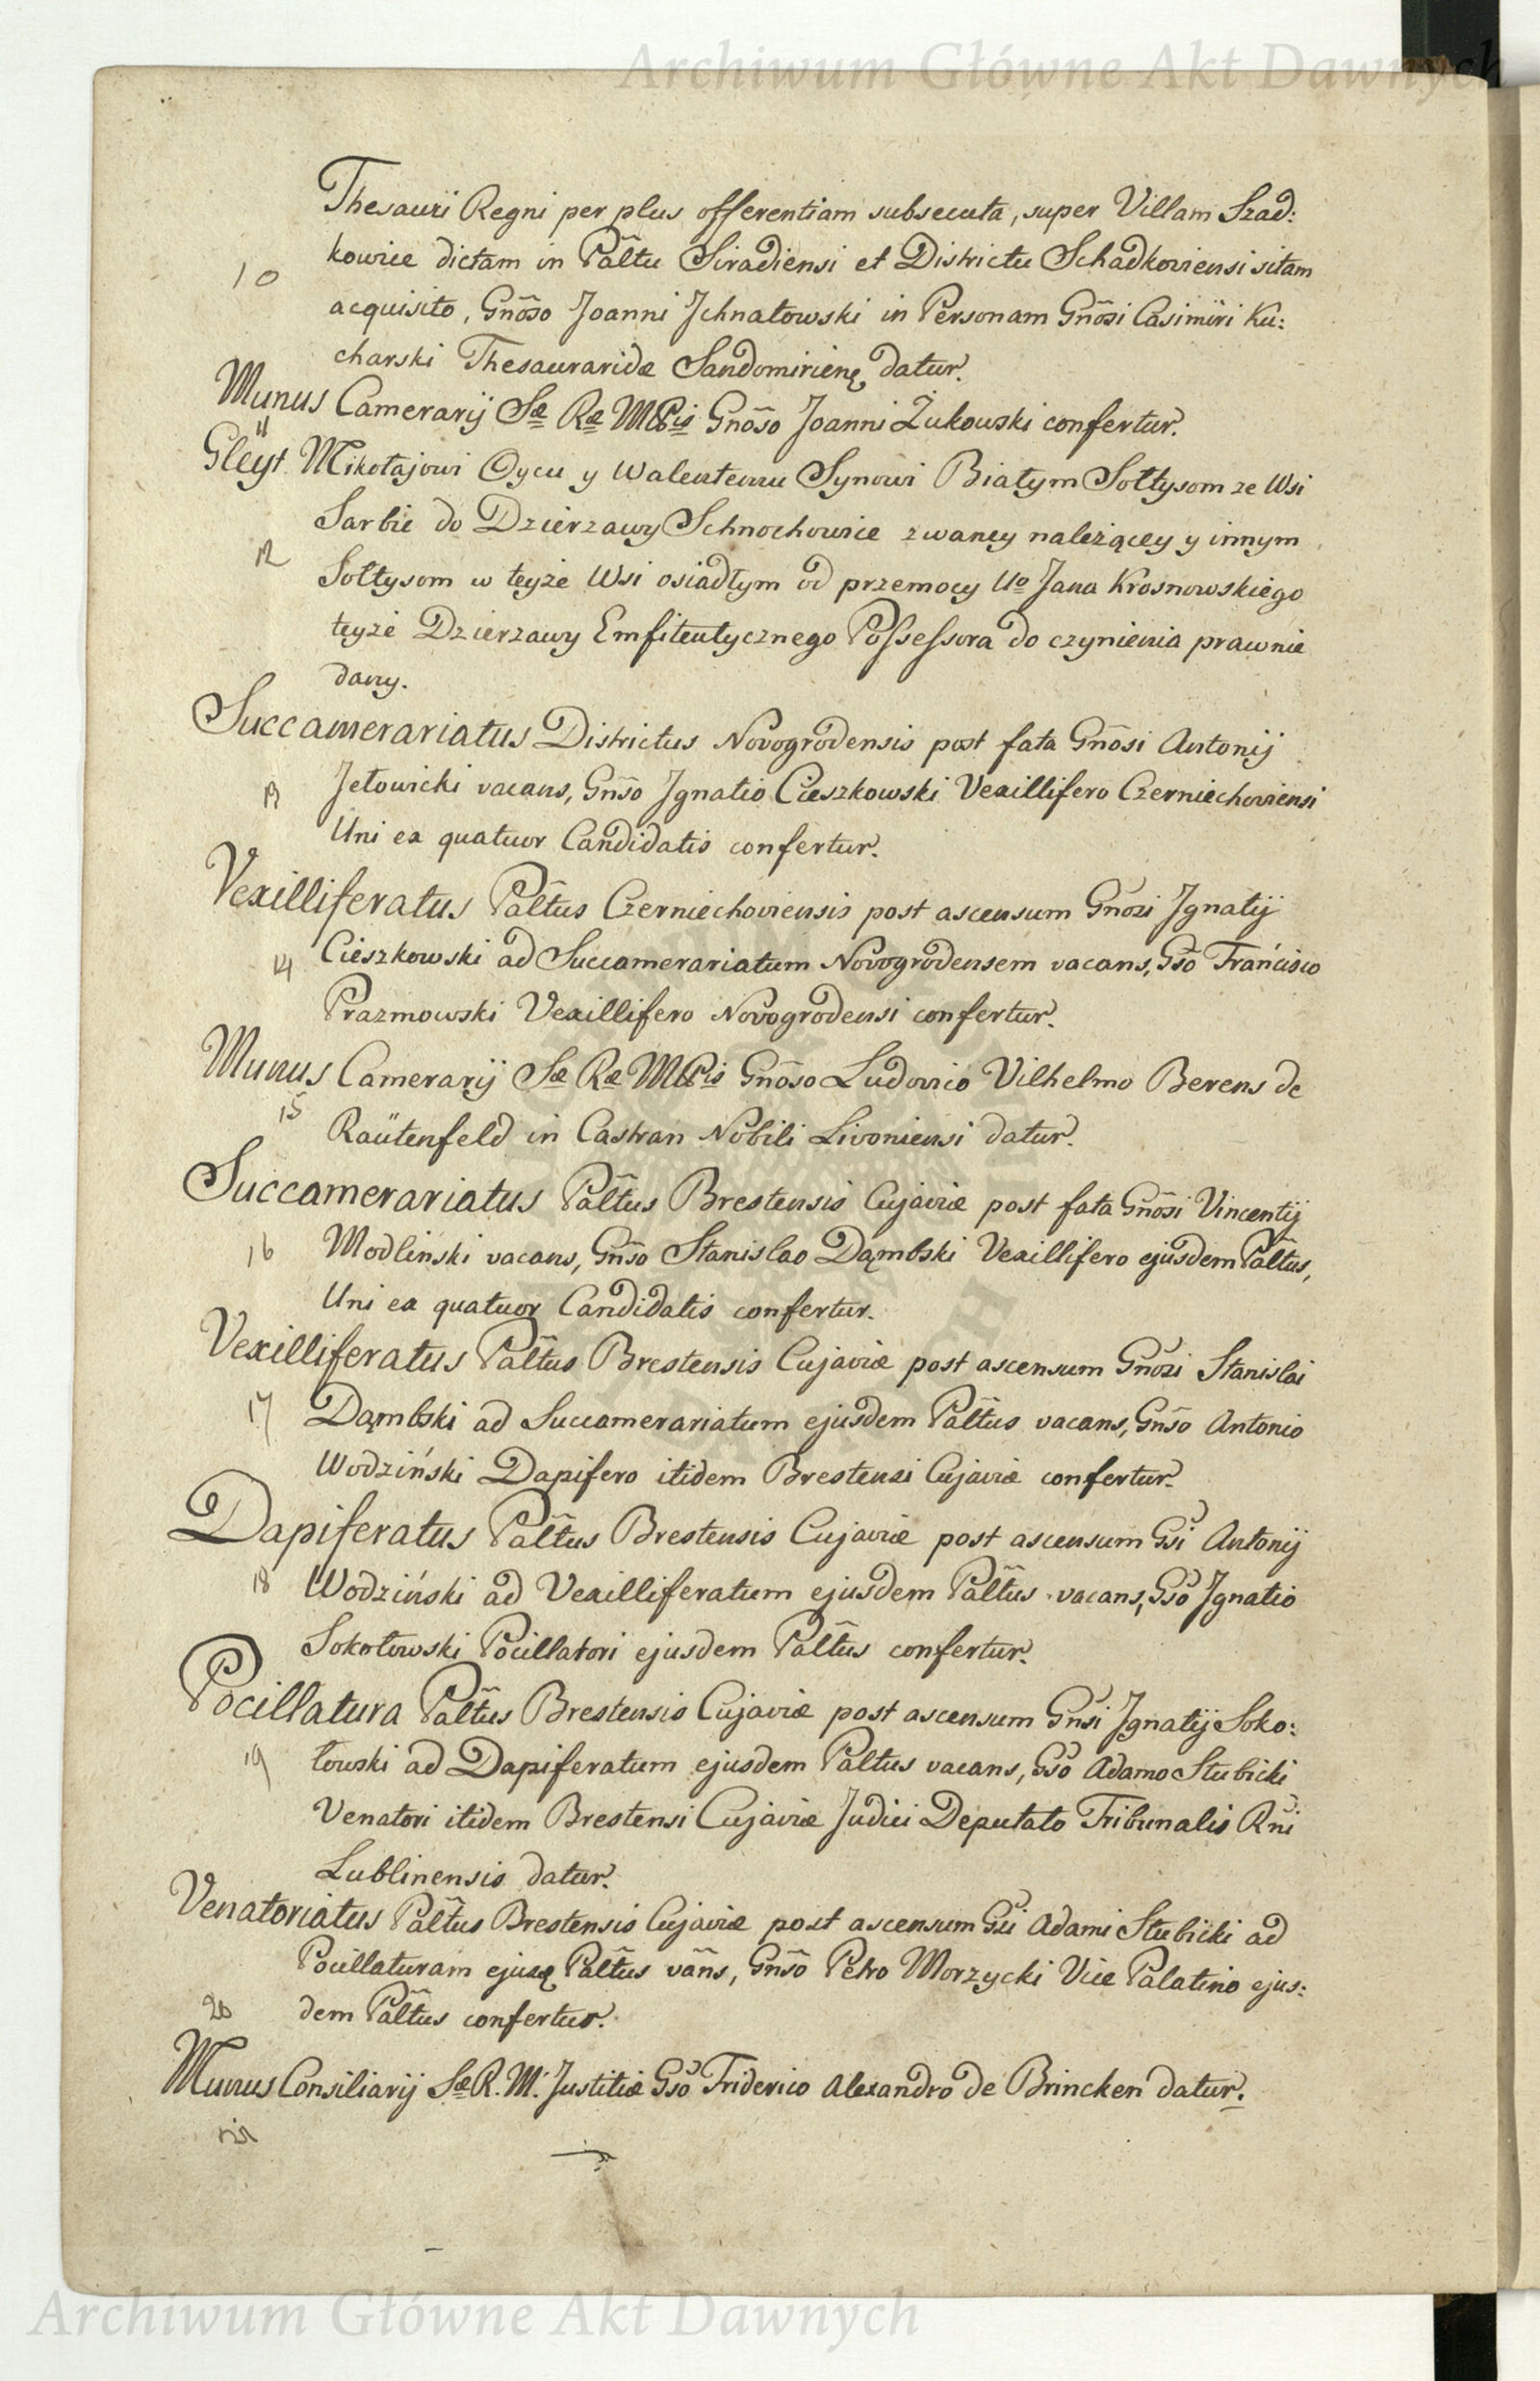 Archiwum Główne Akt Dawnych
Thesauri Regni per plus offerentiam subsecuta, super Villam Szad:
kowice dictam in Pałtu Siradiensi et Districtu Schadkoviensi sitam
10
acquisito, Gnõso Joanni Ichnatowski in Personam Gnõsi Casimiri Ku:
charski Thesauraridæ Sandomirien, datur.
Munus Camerarij Sæ Ræ Mtis Gnõso Joanni Żukowski confertur.
11
Gleyt Mikołajowi Oycu y Walentemu Synowi Białym Sołtysom ze Wsi
Sarbie do Dzierzawy Schnochowice zwaney należącey y innym
12
Sołtysom w teyże Wsi osiadłym od przemocy Uo Jana Krosnowskiego
teyże Dzierzawy Emfiteutycznego Possessora do czynienia prawnie
dany.
Succamerariatus Districtus Novogrodensis post fata Gnõsi Antonij
13
Jełowicki vacans, Gnš̃o Ignatio Cieszkowski Vexillifero Czerniechoviensi
Uni ex quatuor Candidatis confertur.
Vexilliferatus Pałtus Czerniechoviensis post ascensum Gnosi Ignatij
14
Cieszkowski ad Succamerariatum Novogrodensem vacans, Gšo Francisco
Prazmowski Vexillifero Novogrodensi confertur.
Munus Camerarij Sæ Ræ Mtis Gnõso Ludovico Vilhelmo Berens de
15
Raütenfeld in Castran Nobili Livoniensi datur.
Succamerariatus Pałtus Brestensis Cujaviæ post fata Gnõsi Vincentij
16
Modliński vacans, Gnšo Stanislao Dąmbski Vexillifero ejusdem Pałtus,
Uni ex quatuor Candidatis confertur.
Vexilliferatus Pałtus Brestensis Cujaviæ post ascensum Gnosi Stanislai
17
Dąmbski ad Succamerariatum ejusdem Pałtus vacans, Gnšo Antonio
Wodziński Dapifero itidem Brestensi Cujaviæ confertur.
Dapiferatus Pałtus Brestensis Cujaviæ post ascensum Gsi Antonij
18
Wodziński ad Vexilliferatum ejusdem Pałtus vacans, Gso Ignatio
Sokołowski Pocillatori ejusdem Pałtus confertur.
Pocillatura Pałtus Brestensis Cujaviæ post ascensum Gnsi Ignatij Soko:
19
łowski ad Dapiferatum ejusdem Pałtus vacans, Gso Adamo Słubicki
Venatori itidem Brestensi Cujaviæ Judici Deputato Tribunalis Rni
Lublinensis datur.
Venatoriatus Pałtus Brestensis Cujaviæ post ascensum Gsi Adami Słubicki ad
Pocillaturam ejusq Pałtus vãns, Gnšo Petro Morzycki Vice Palatino ejus:
20
dem Pałtus confertur.
Munus Consiliarij Sæ R. M. Justitiæ Gso Friderico Alexandro de Brincken datur.
21
Archiwum Główne Akt Dawnych